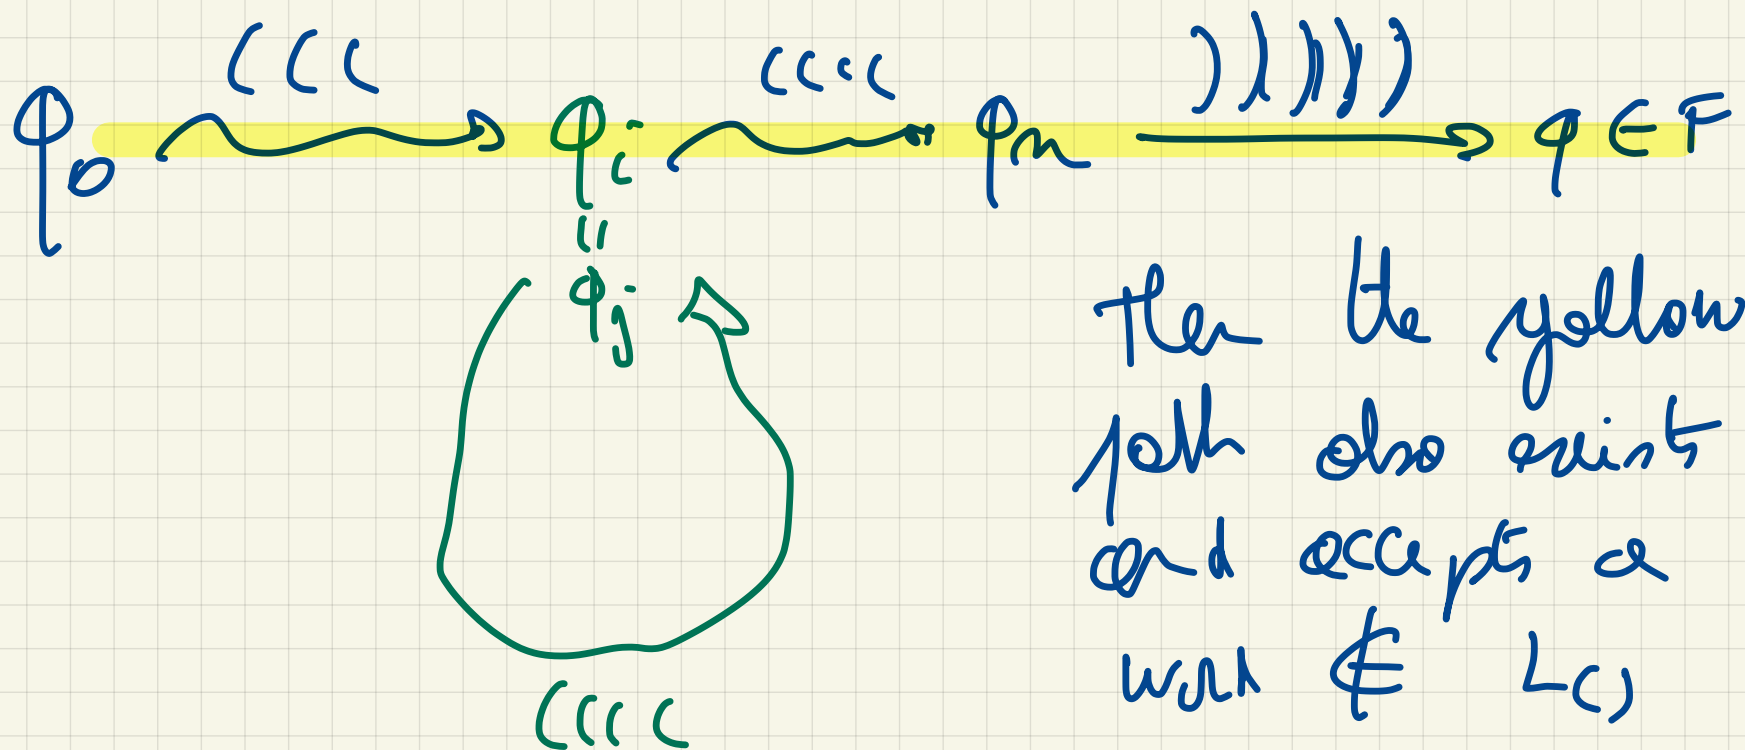 ( ( ( ( ( ( ( ) ) ) ) ) )
q₀ qᵢ qₙ q ∈ F
=
qⱼ Then the yellow
path also exists
and accepts a
word ∉ L()
( ( ( (